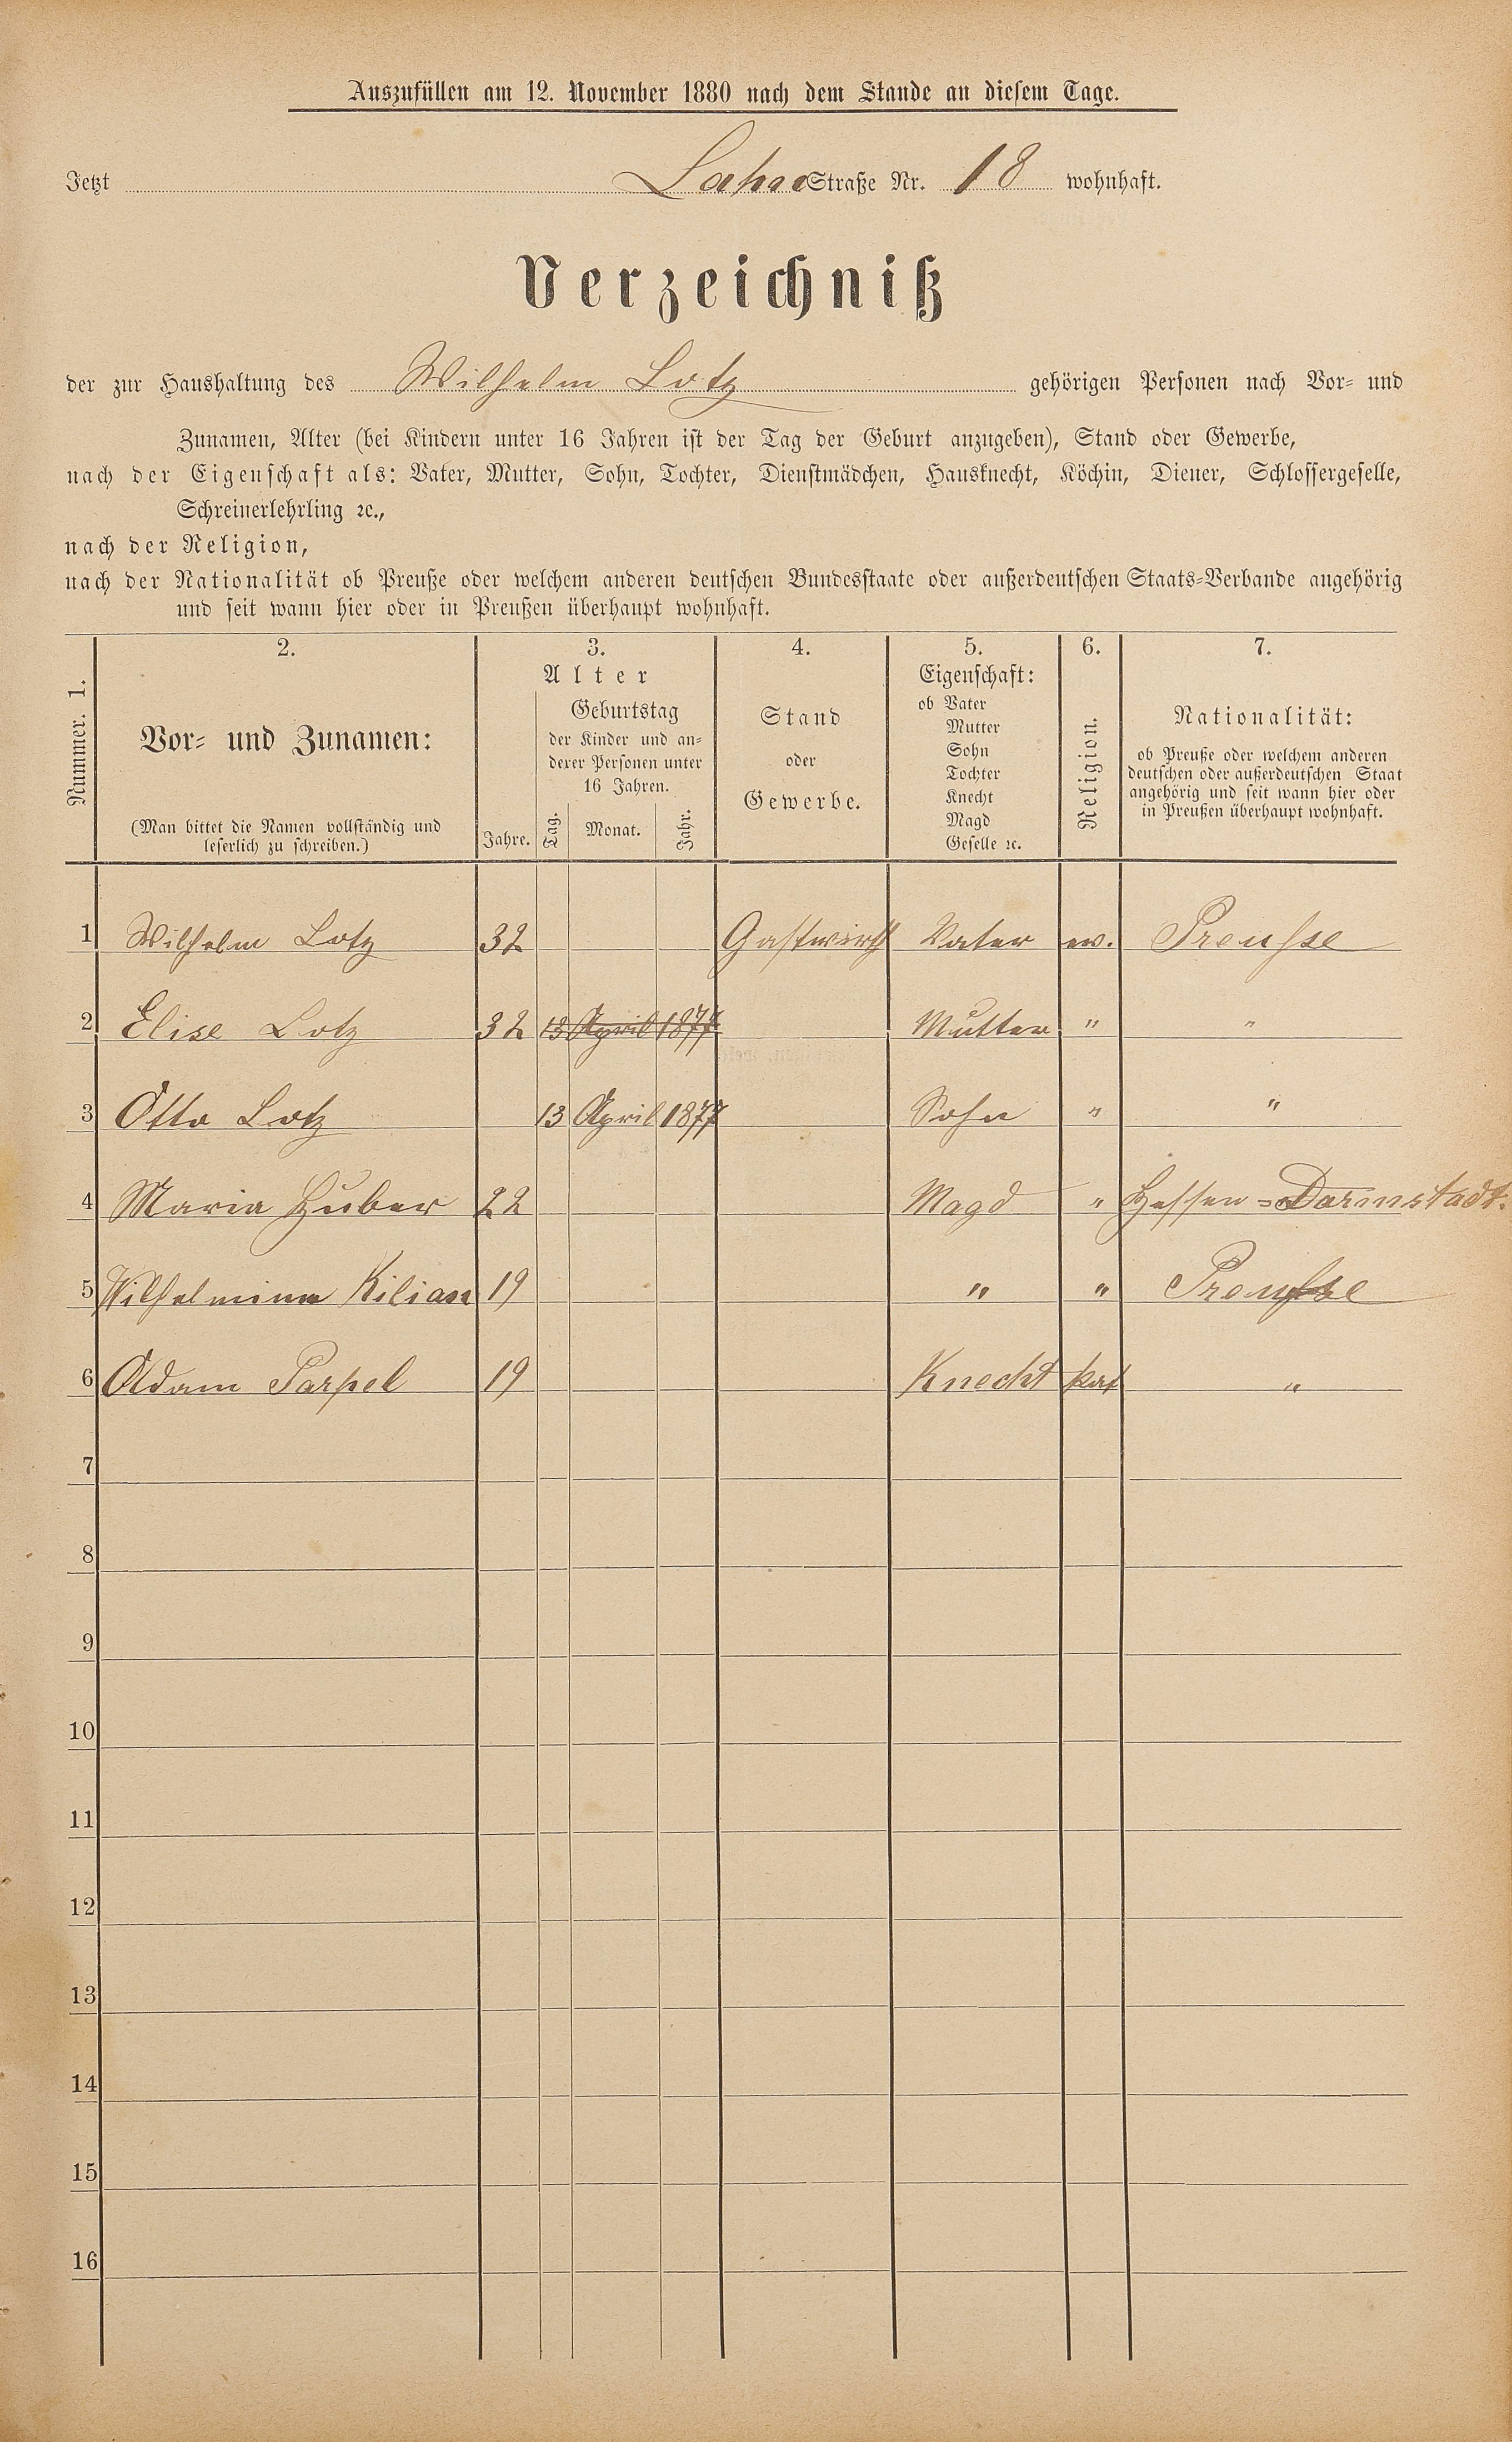 Auszufüllen am 12. November 1880 nach dem Stande an diesem Tage.
Jetzt Lahn Straße Nr. 18 wohnhaft.
Verzeichniß
der zur Haushaltung des Wilhelm Lotz gehörigen Personen nach Vor- und
Zunamen, Alter (bei Kindern unter 16 Jahren ist der Tag der Geburt anzugeben), Stand oder Gewerbe,
nach der Eigenschaft als: Vater, Mutter, Sohn, Tochter, Dienstmädchen, Hausknecht, Köchin, Diener, Schlossergeselle,
Schreinerlehrling ꝛc.,
nach der Religion,
nach der Nationalität ob Preuße oder welchem anderen deutschen Bundesstaate oder außerdeutschen Staats-Verbande angehörig
und seit wann hier oder in Preußen überhaupt wohnhaft.
Nummer. 1.
2.
Vor- und Zunamen:
(Man bittet die Namen vollständig und
leserlich zu schreiben.)
3.
Alter
Jahre.
Geburtstag
der Kinder und an-
derer Personen unter
16 Jahren.
Tag. Monat. Jahr.
4.
Stand
oder
Gewerbe.
5.
Eigenschaft:
ob Vater
Mutter
Sohn
Tochter
Knecht
Magd
Geselle ꝛc.
6.
Religion.
7.
Nationalität:
ob Preuße oder welchem anderen
deutschen oder außerdeutschen Staat
angehörig und seit wann hier oder
in Preußen überhaupt wohnhaft.
1 Wilhelm Lotz 32 Gastwirth Vater ev. Preusse
2 Elise Lotz 32 13 April 1877 Mutter " "
3 Otto Lotz 13 April 1877 Sohn " "
4 Maria Huber 22 Magd " Hessen-Darmstadt.
5 Wilhelmina Kilian 19 " " Preusse
6 Adam Parpel 19 Knecht kat "
7
8
9
10
11
12
13
14
15
16